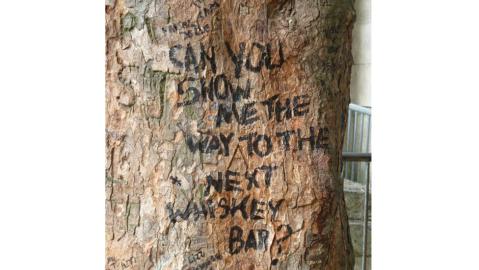 CAN YOU
SHOW
ME THE
WAY TO THE
NEXT
WHISKEY
BAR?